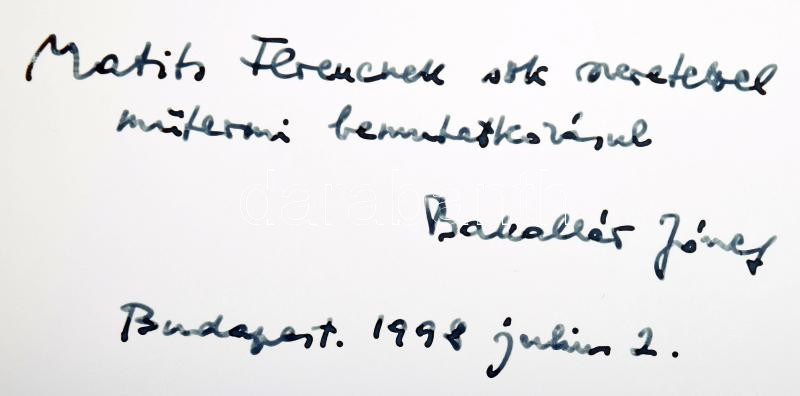 Matits Ferencnek sok szeretettel
műtermi bemutatkozásul
Bakallár József
Budapest. 1998 július 2.